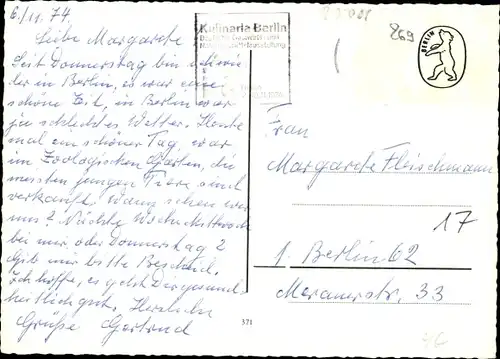 6./11. 74.
Liebe Margarete
Seit Donnerstag bin ich wie
der in Berlin, es war eine
schöne Zeit, in Berlin war
ja schlechtes Wetter. Heute
mal ein schöner Tag, war
im Zoologischen Garten, die
meisten jungen Tiere sind
verkauft. Wann sehen wir
uns? Nächste Woche Mittwoch
bei mir oder Donnerstag?
Gib mir bitte Bescheid.
Ich hoffe, es geht Dir gesund-
heitlich gut. Herzliche
Grüße Gertrud
Kulinaria Berlin
269
BERLIN
Frau
Margarete Fleischmann
17
1 Berlin 62
Meranerstr. 33
371